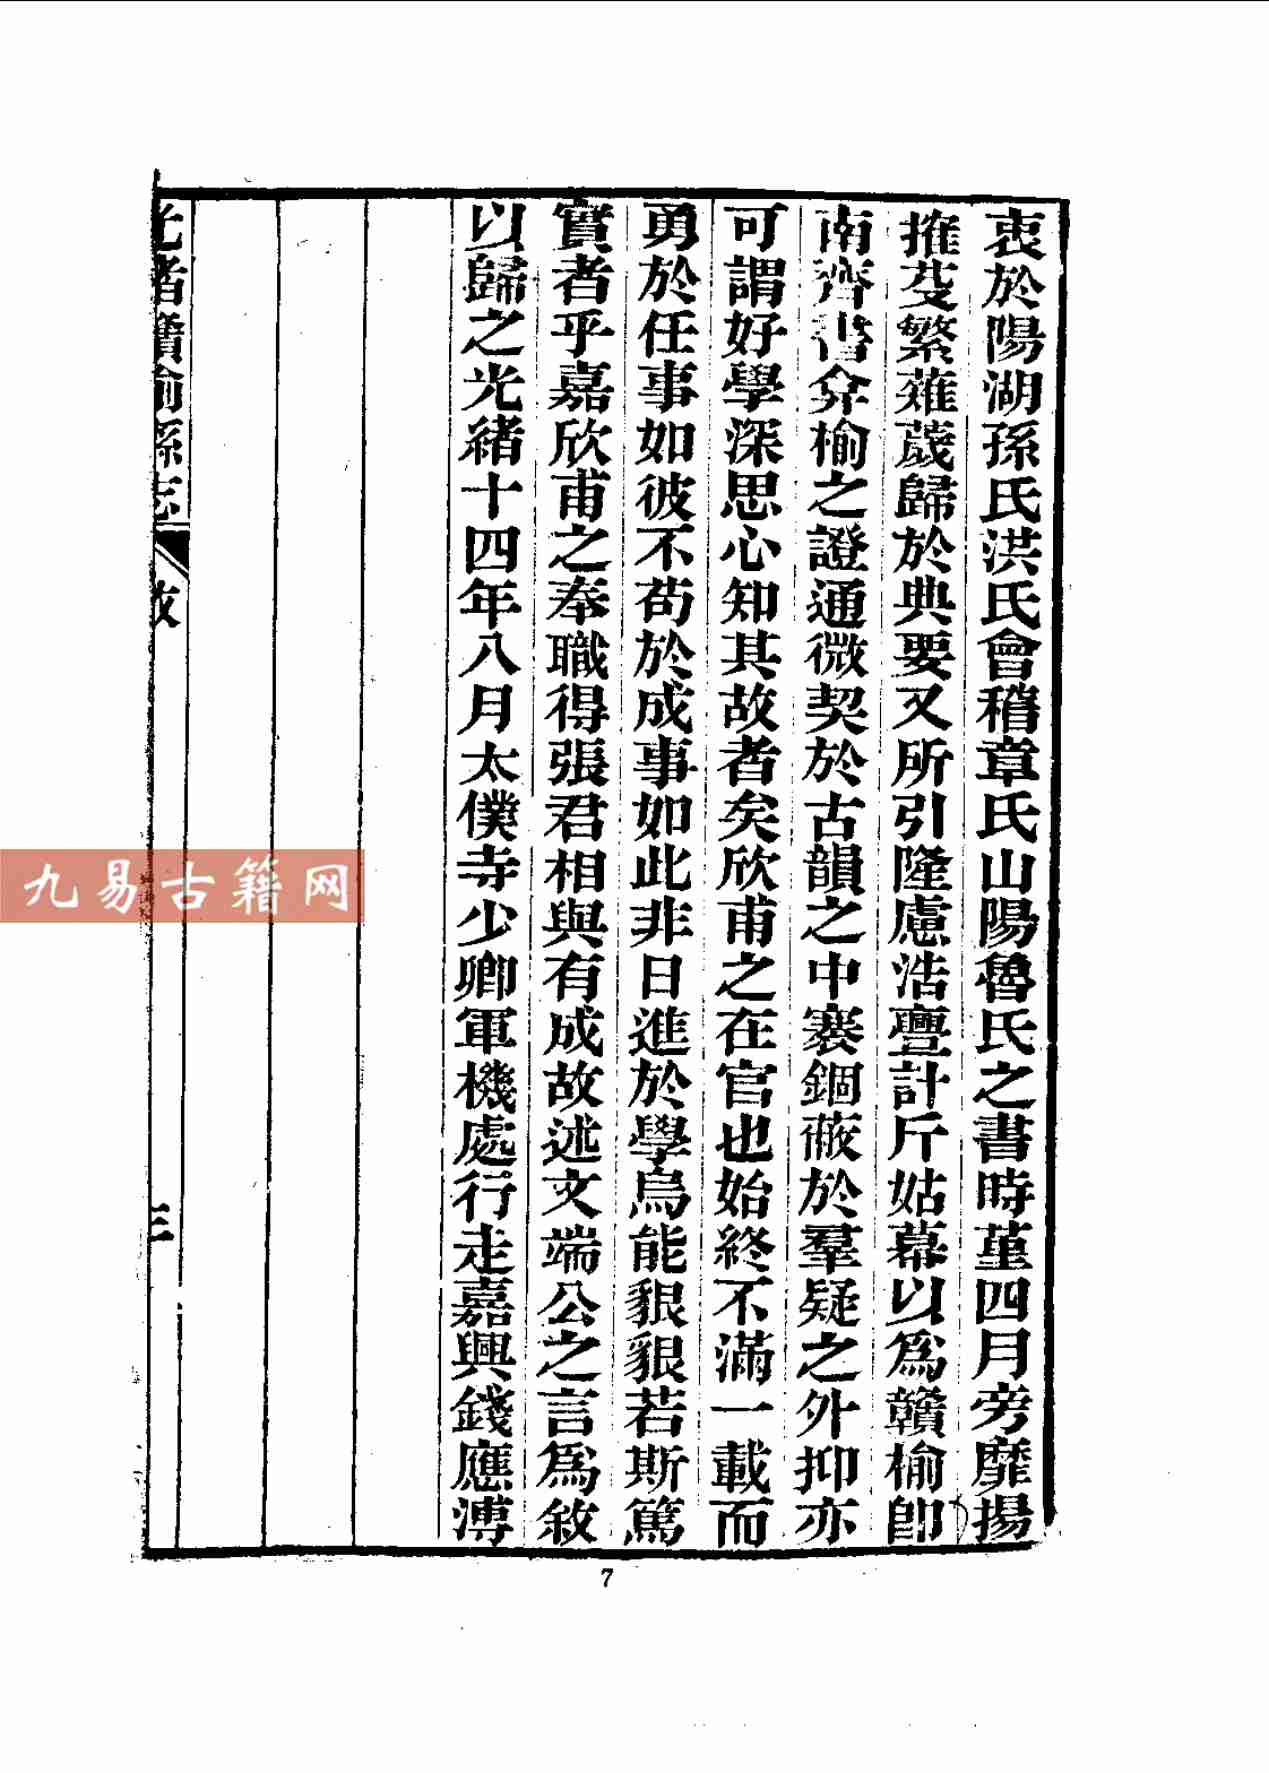 衷於陽湖孫氏洪氏會稽章氏山陽魯氏之書時堇四月旁靡揚
搉芟繁薙薉歸於典要又所引隆慮浩亹計斤姑幕以爲贛榆卽
南齊書弇榆之證通微契於古韻之中褰錮蔽於羣疑之外抑亦
可謂好學深思心知其故者矣欣甫之在官也始終不滿一載而
勇於任事如彼不苟於成事如此非日進於學烏能貇貇若斯篤
實者乎嘉欣甫之奉職得張君相與有成故述文端公之言爲敘
以歸之光緒十四年八月太僕寺少卿軍機處行走嘉興錢應溥
光緒贛榆縣志
敘
三
7
九易古籍网